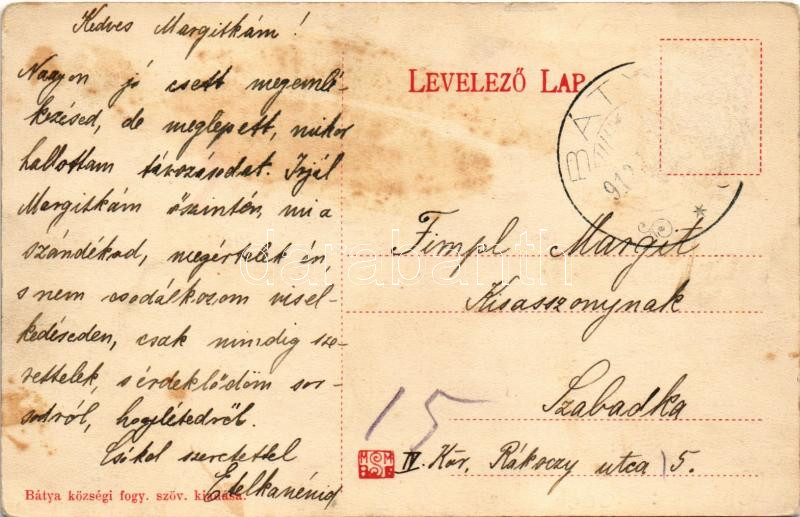 Kedves Margitkám!
Nagyon jó esett megemlé-
kezésed, de meglepett, mikor
hallottam távozásodat. Irjál
Margitkám őszintén, mi a
szándékod, megértelek én,
s nem csodálkozom visel-
kedéseden, csak mindig sze-
rettelek, s érdeklődöm sor-
sodról, hogylétedről.
Csókol szeretettel
Etelkanénid
Bátya községi fogy. szöv. kiadása.
LEVELEZŐ LAP
BÁTY
Fimpl Margit
Kisasszonynak
Szabadka
IV. Kör, Rákoczy utca 15.
15
darabanth